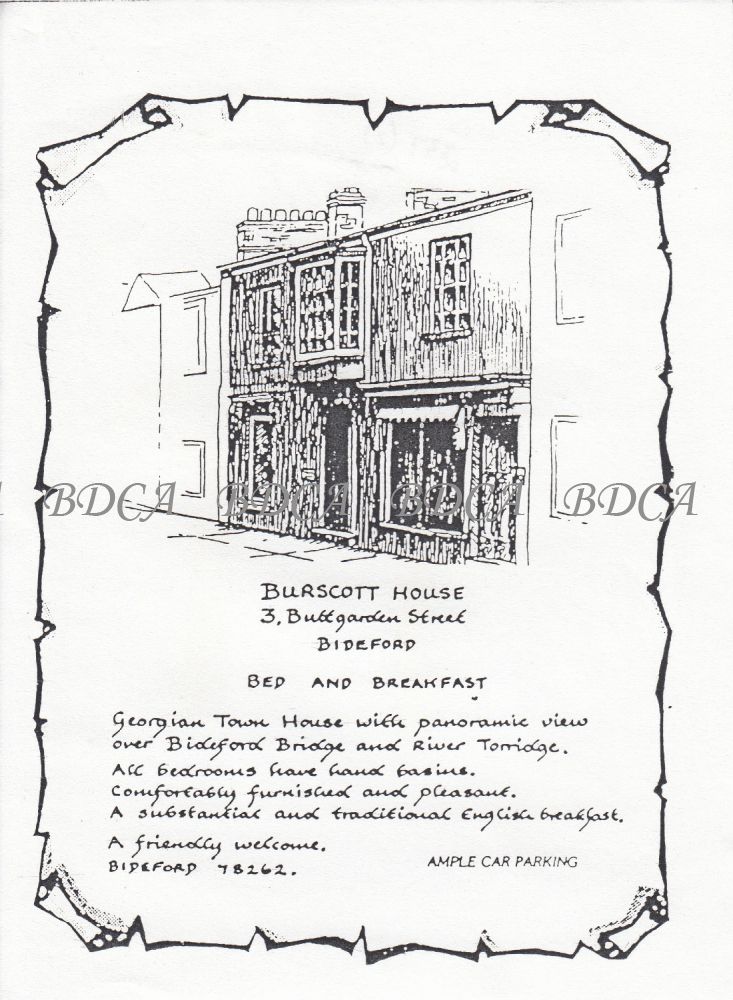 BDCA BDCA BDCA BDCA
BURSCOTT HOUSE
3, Buttgarden Street
BIDEFORD
BED AND BREAKFAST
Georgian Town House with panoramic view
over Bideford Bridge and River Torridge.
All bedrooms have hand basins.
Comfortably furnished and pleasant.
A substantial and traditional English breakfast.
A friendly welcome.
BIDEFORD 78262.
AMPLE CAR PARKING